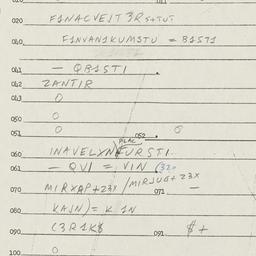 020 F1NACVEIT 3RS+TUT
040 F1NVAN1KUMSTU = B1ST1
041 - QB1STI
042 ZANTIR
043 0
050 0
051 0 052 0
PLAC,
060 INAVELYN FURSTI
061 - QVI = VIN (32
070 MIRXAP+23X /MIRJUG+23X
071 -
080 KAJN)= K 1N
090 C3R1K$ 091 $+
100 0